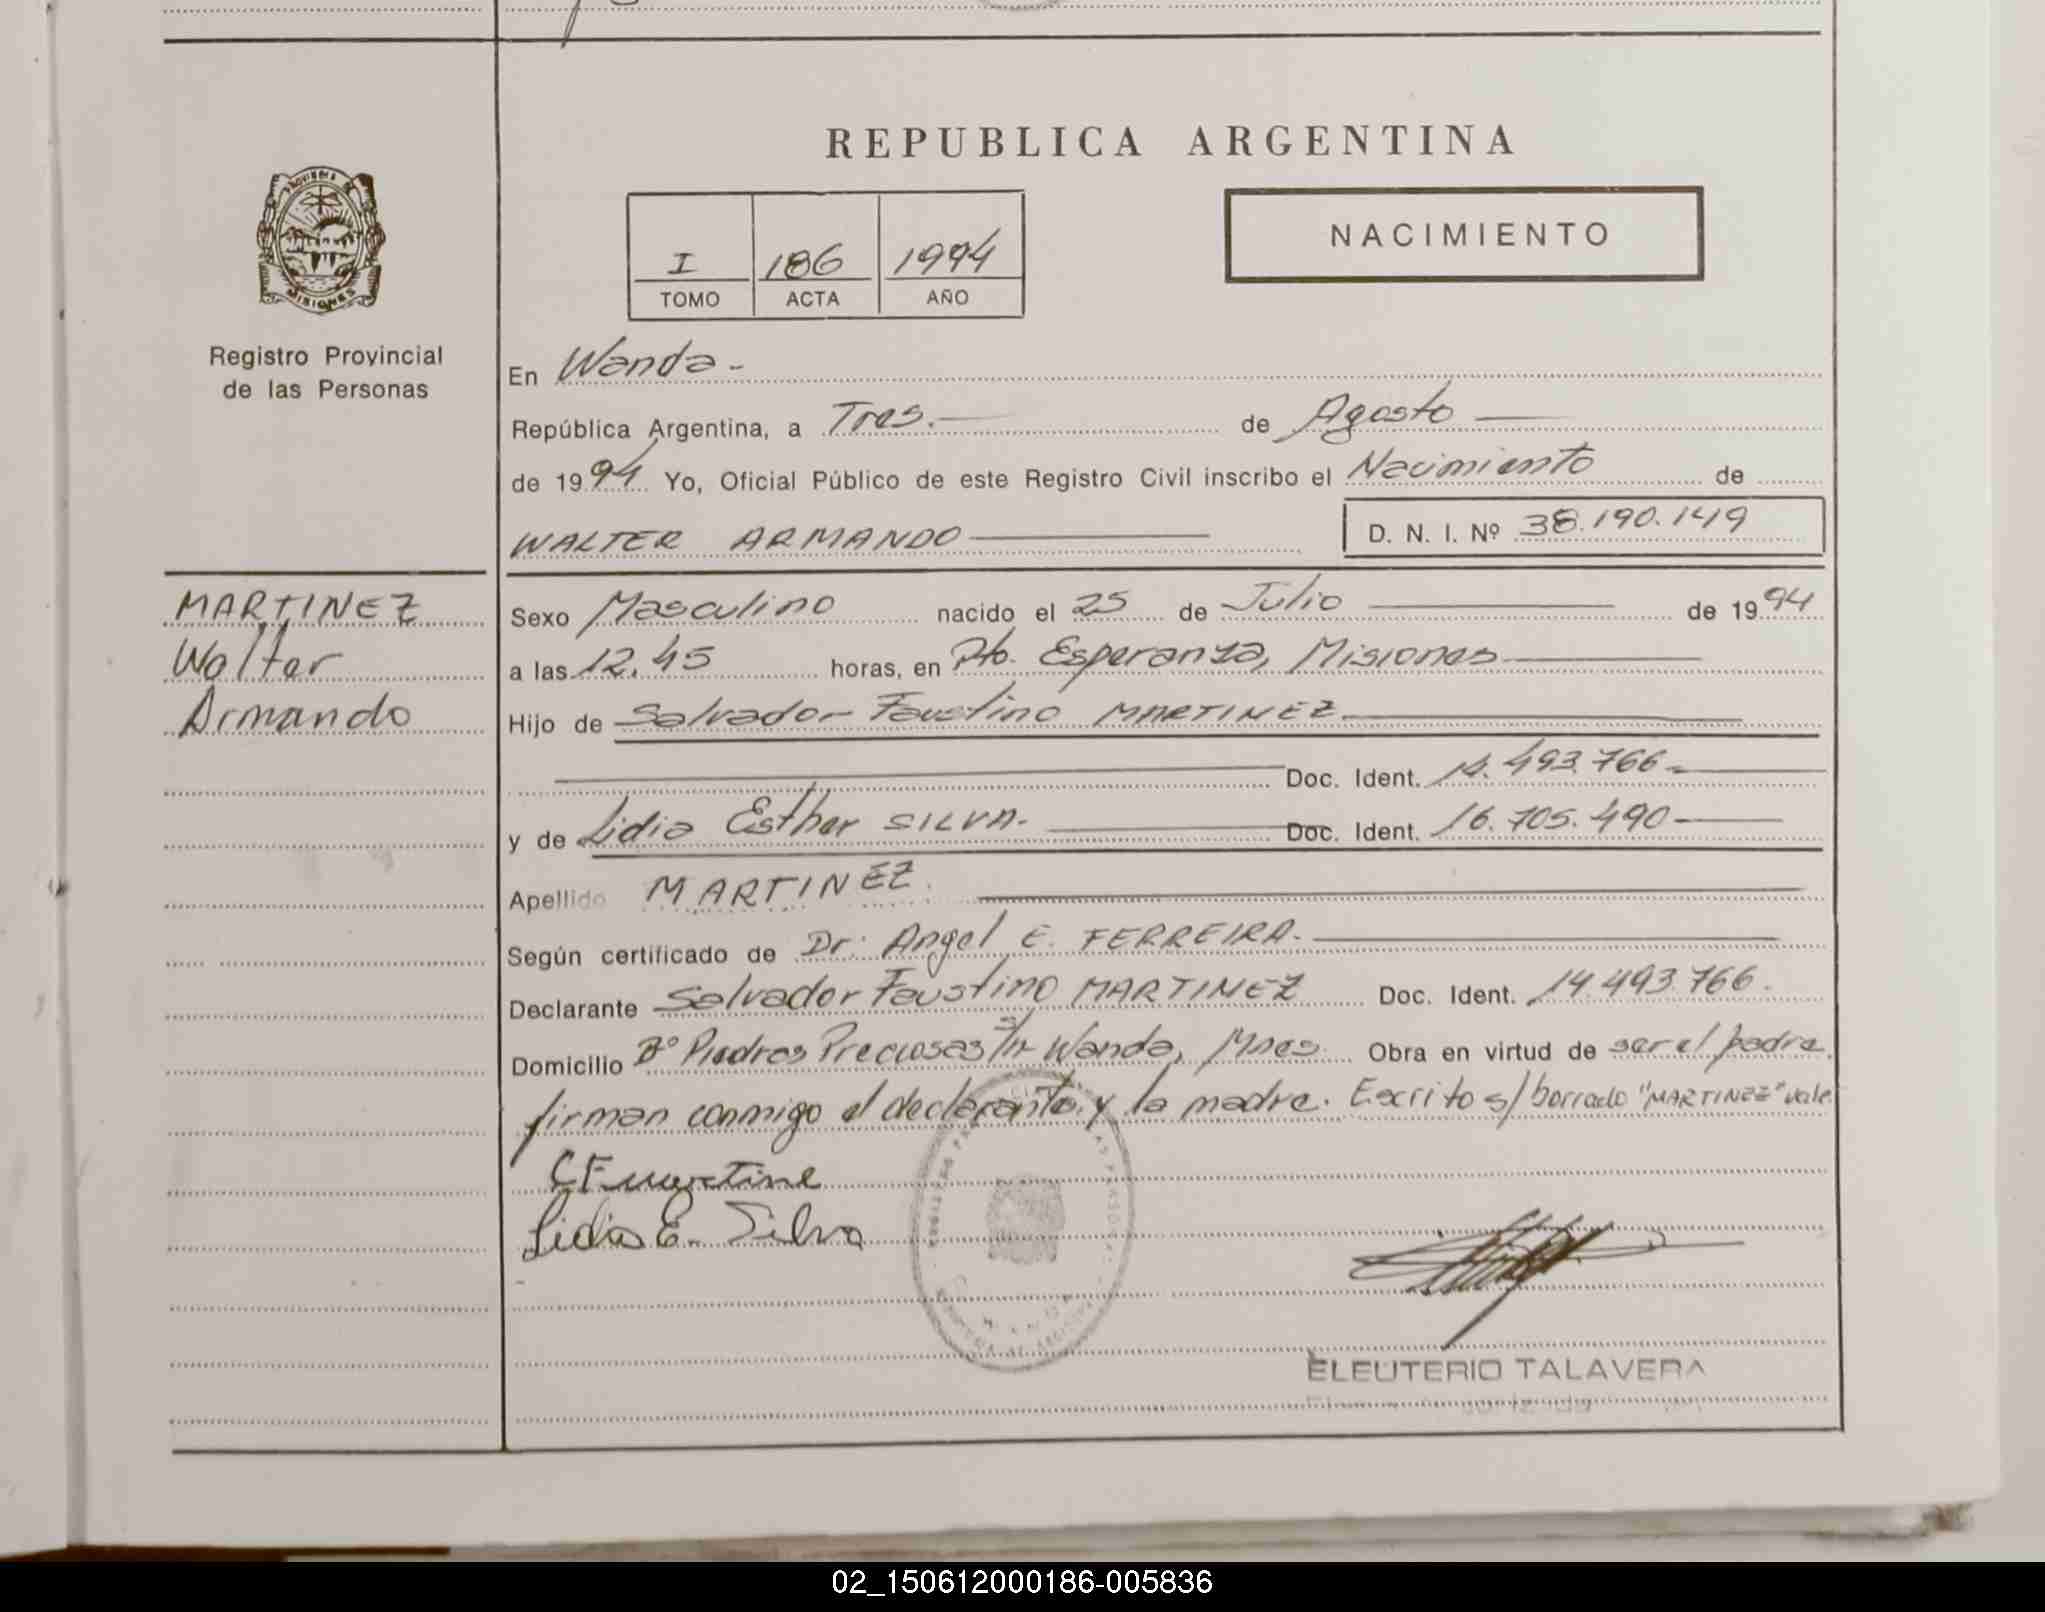 REPUBLICA ARGENTINA
NACIMIENTO
I 186 1994
TOMO ACTA AÑO
PROVINCIA DE
MISIONES
Registro Provincial
de las Personas
En Wanda -
República Argentina, a Tres. de Agosto
de 1994 Yo, Oficial Público de este Registro Civil inscribo el Nacimiento de
WALTER ARMANDO D. N. I. Nº 38.190.149
MARTINEZ
Walter
Armando
Sexo Masculino nacido el 25 de Julio de 1994
a las 12.45 horas, en Pto. Esperanza, Misiones
Hijo de Salvador Faustino MARTINEZ
Doc. Ident. 14.493.766-
y de Lidia Esther SILVA. Doc. Ident. 16.705.490-
Apellido MARTINEZ.
Según certificado de Dr. Angel E. FERREIRA.
Declarante Salvador Faustino MARTINEZ Doc. Ident. 14.493.766.
Domicilio Bº Piedras Preciosas s/n Wanda, Mnes. Obra en virtud de ser el padre.
firman conmigo el declarante y la madre. Escrito s/ borrado "MARTINEZ" vale.
Lidia E. Silva
ELEUTERIO TALAVERA
02_150612000186-005836